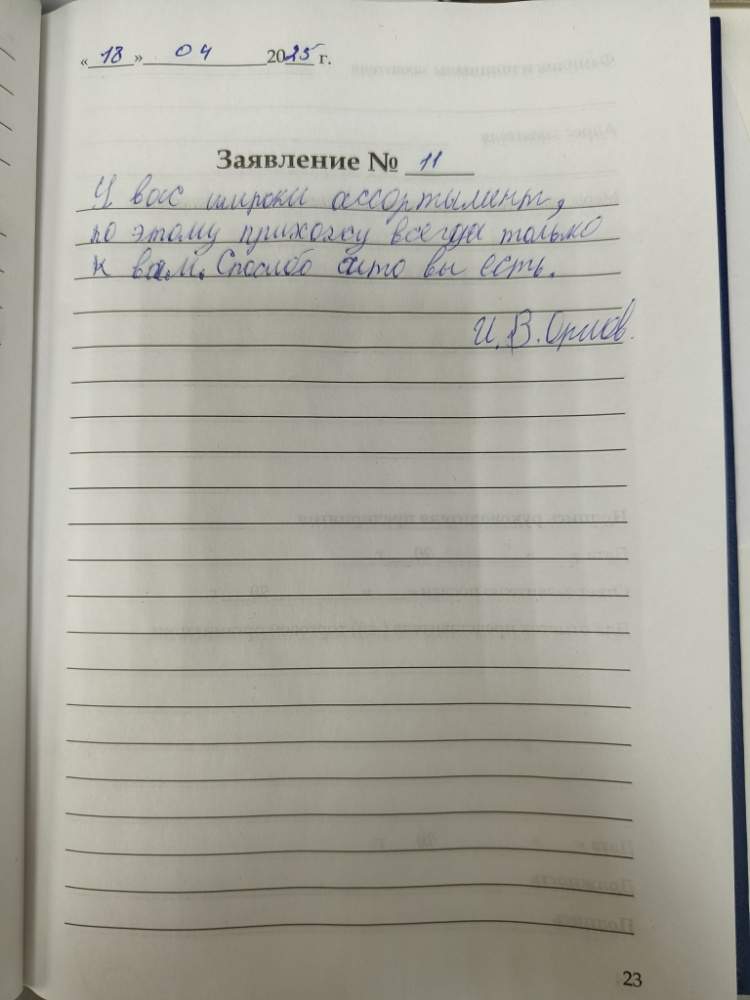 «18» 04 2025 г.
Заявление № 11
У вас широки ассортымент,
по этому прихожу всегда только
к вам. Спасибо что вы есть.
И.В.Орлов.
23